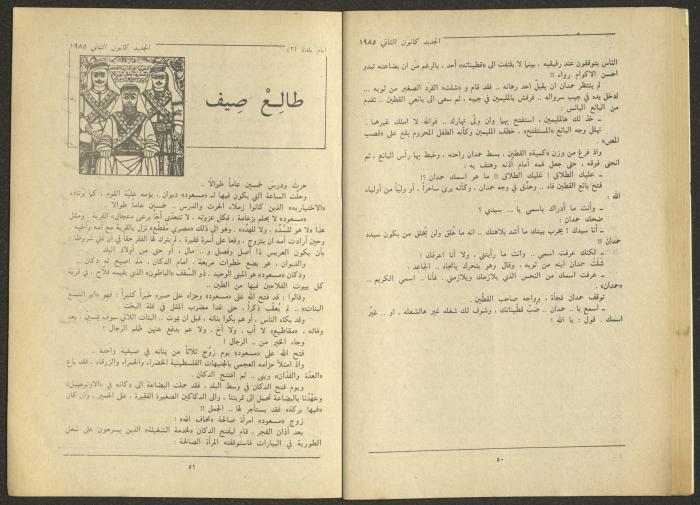 الجديد كانون الثاني ١٩٨٥
الناس يتوقفون عند رفيقيه ، بينما لا يلتفت الى «قطيناته» أحد ، بالرغم من ان بضاعته تبدو
احسن الاكوام رواء !!
لم ينتظر حمدان ان يقبل احد رهانه .. فقد قام و«شلت» القرد الصغير من ثوبه ...
ادخل يده في جيب سرواله .. فرفش بالمليمين في جيبه ، ثم سعى الى بائعي القطين .. تقدم
من البائع البائس :
ـ خذ لك هالمليمين ، استفتح بهما وان ولّى نهارك .. فوالله لا املك غيرهما .
تهلل وجه البائع «المستفتح» ، خطف المليمين وكأنه الطفل المحروم يقع على «قصب
المص»
واذ فرغ من وزن «كمية» القطين ، بسط حمدان راحته ، وخبط بها رأس البائع ، ثم
انحنى فوقه ، حتى جعل فمه أمام أذنه وهتف به :
ـ عليك الطلاق ! عليك الطلاق !! ما هو اسمك حمدان ؟!
فتح بائع القطين فاه .. وحدّق في وجه حمدان ، وكأنه يرى ساحراً ، أو ولياً من أولياء
الله :
ـ وأنت ما أدراك باسمي يا ... سيدي ؟
ضحك حمدان :
ـ أنا سيدك ؟ يخرب بيتك ما أشد بلاهتك .. انه ما خلق ولن يخلق من يكون سيده
حمدان !!
ـ لكنك عرفت اسمي .. وانت ما رأيتني ، ولا أنا اعرفك !
شلت حمدان ابنه من ثوبه ، وقال وهو يتحرك باتجاه .. الجاعد :
ـ عرفت اسمك من النحس الذي يلازمك ويلازمني . فأنا .. اسمي الكريم ...
«حمدان» .
توقف حمدان فجأة ، وواجه صاحب القطين .
ـ اسمع يا .. حمدان .. ضبّ قطيناتك ، وشوف لك شغله غير هالشغله ، او .. غيّر
اسمك . قول : يا الله !
٥٠
ايام بلدنا (٢)
الجديد كانون الثاني ١٩٨٥
طالِعْ صِيف
حرث ودرس خمسين عاماً طوالاً ..
وحلّت الساعة التي يكون فيها لـ «مسعود» ديوان ، يؤمه علية القوم ، كما يرتاده
«الاختيارية» الذين كانوا زملاء الحرث والدرس .. خمسين عاماً طوالاً ..
«مسعود» لا يحلم بزعامة ، فكل عزوته ، لا تتعدّى أخاً يرعى «عجال» القرية . ومثل
هذا «لا هو للسدّه ، ولا للهدّه» . وهو الى ذلك «مصري مقطّع» نزل بالقرية مع أمه وأخيه
وحين أرادت أمه ان يتزوج ، وقعا على أسرة فقيرة .. لم يترك لها الفقر حقاً في أن تملي شروطها :
بأن يكون العريس ذا أصل وفصل و .. مال ، أو حتى من أولاد البلد .
والديوان ، هو بضع خطوات مربعة ، امام الدكان ، مذ اصبح له دكان ...
ودكان «مسعود» هو المبنى الوحيد ، ذو السقف «الباطون» الذي يقيمه فلاح ، في قرية
كل بيوت الفلاحين فيها من الطين ..
وقالوا : قد فتح الله على «مسعود» وجزاه على صبره خيراً كثيراً ؛ فهو «ابو التسع
البنات» .. لم يعقّب ذكراً ، حتى غدا مضرب المثل في قلة البخت ..
وقد بكاه الناس ، أو هم بكوا بناته ، قبل ان يموت .. البنات اللاتي سوف يمسين ، بعد
وفاته ، «مقاطيع» لا أب ، ولا أخ ، ولا عم يدفع عنهن ظلم الرجال !
وجاء الخير من .. الرجال !
فتح الله على «مسعود» يوم زوّج ثلاثاً من بناته في صيفية واحدة ..
واذ امتلأ حزامه العجمي بالجنيهات الفلسطينية الخضراء والحمراء والزرقاء ، فقد باع
«العدّة والفدّان» وبنى .. ثم افتتح الدكان .
ويوم فتح الدكان في وسط البلد ، فقد حملت البضاعة الى دكانه في «الاوتومبيل»
وعهدنا بالبضاعة تحمل الى قريتنا ، والى الدكاكين الصغيرة الفقيرة ، على الحمير ، وان كان
«فيها بركة» فقد يستأجر لها .. الجمل !!
زوج «مسعود» امرأة صالحة «تخاف الله» !
بعد أذان الفجر ، قام ليفتح الدكان «لخدمة الشغيلة» الذين يسرحون على شغل
الطورية في البيارات فاستوقفته المرأة الصالحة :
٥١